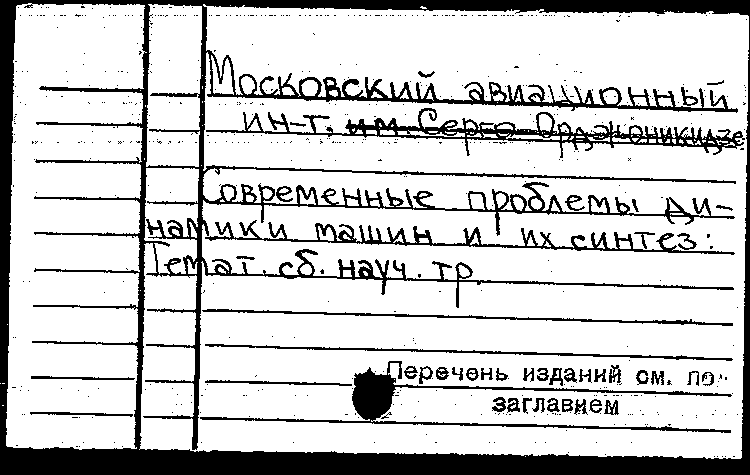 Московский авиационный
ин-т. им. Серго Орджоникидзе
Современные проблемы ди-
намики машин и их синтез:
Темат. сб. науч. тр.
Перечень изданий см. по
заглавием